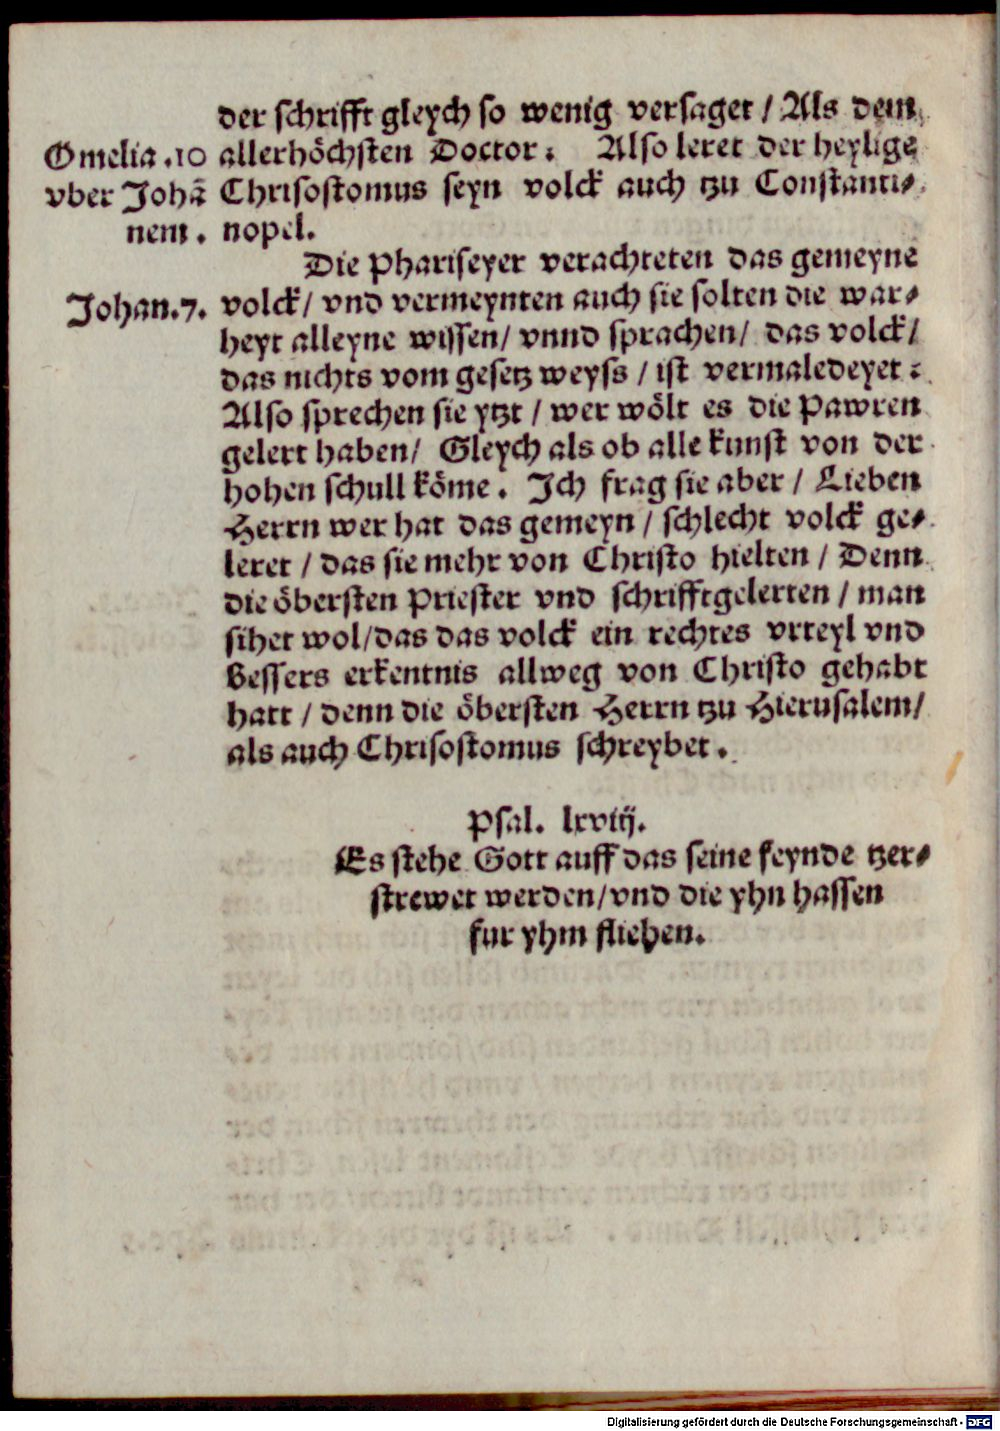 der schrifft gleych so wenig versaget / Als dem
Omelia .10 allerhöchsten Doctor : Also leret der heylige
vber Johā Chrisostomus seyn volck auch tzu Constanti⸗
nem . nopel.
Die Phariseyer verachteten das gemeyne
Johan.7. volck/ vnd vermeynten auch sie solten die war⸗
heyt alleyne wissen/ vnnd sprachen/ das volck/
das nichts vom gesetz weyss / ist vermaledeyet :
Also sprechen sie ytzt / wer wölt es die Pawren
gelert haben/ Gleych als ob alle kunst von der
hohen schull köme . Ich frag sie aber / Lieben
Herrn wer hat das gemeyn / schlecht volck ge⸗
leret / das sie mehr von Christo hielten / Denn
die öbersten Priester vnd schrifftgelerten / man
sihet wol/das das volck ein rechtes vrteyl vnd
bessers erkentnis allweg von Christo gehabt
hatt / denn die öbersten Herrn tzu Hierusalem/
als auch Chrisostomus schreybet .
Psal. lxviij.
Es stehe Gott auff das seine feynde tzer⸗
strewet werden/vnd die yhn hassen
fur yhm fliehen.
Digitalisierung gefördert durch die Deutsche Forschungsgemeinschaft - DFG